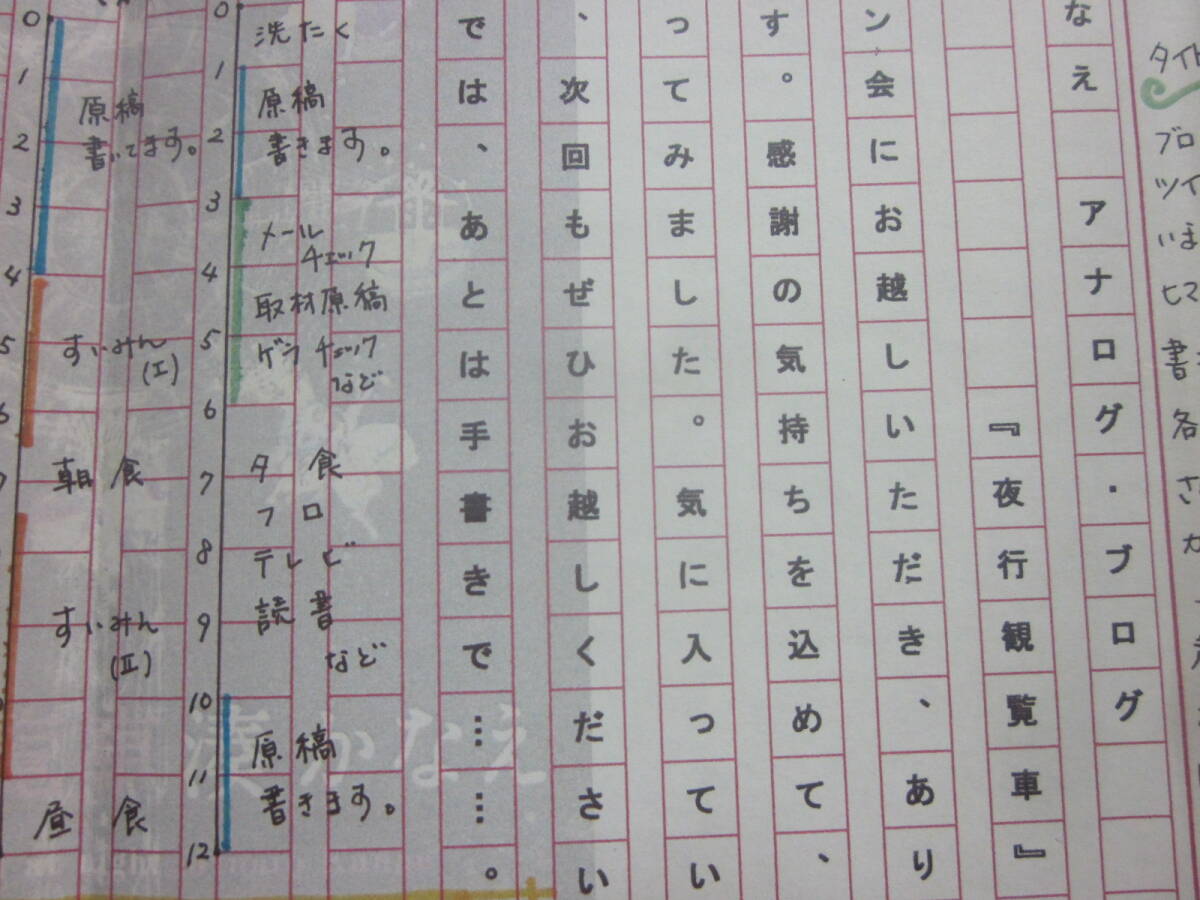 タイト
ブロ
ツイ
いま
ヒマ
書き
各
さ
なえ　アナログ・ブログ
『夜行観覧車』
ン会にお越しいただき、あり
す。感謝の気持ちを込めて、
ってみました。気に入ってい
、次回もぜひお越しください
では、あとは手書きで……。
0
洗たく
1
原稿
書きます。
2
3
メール
チェック
4
取材原稿
5
ゲラチェック
など
6
夕食
7
フロ
8
テレビ
9
読書
など
10
原稿
11
書きます。
12
0
1
原稿
書いてます。
2
3
4
5
すいみん
(I)
6
朝食
7
すいみん
(II)
昼食
湊かなえ